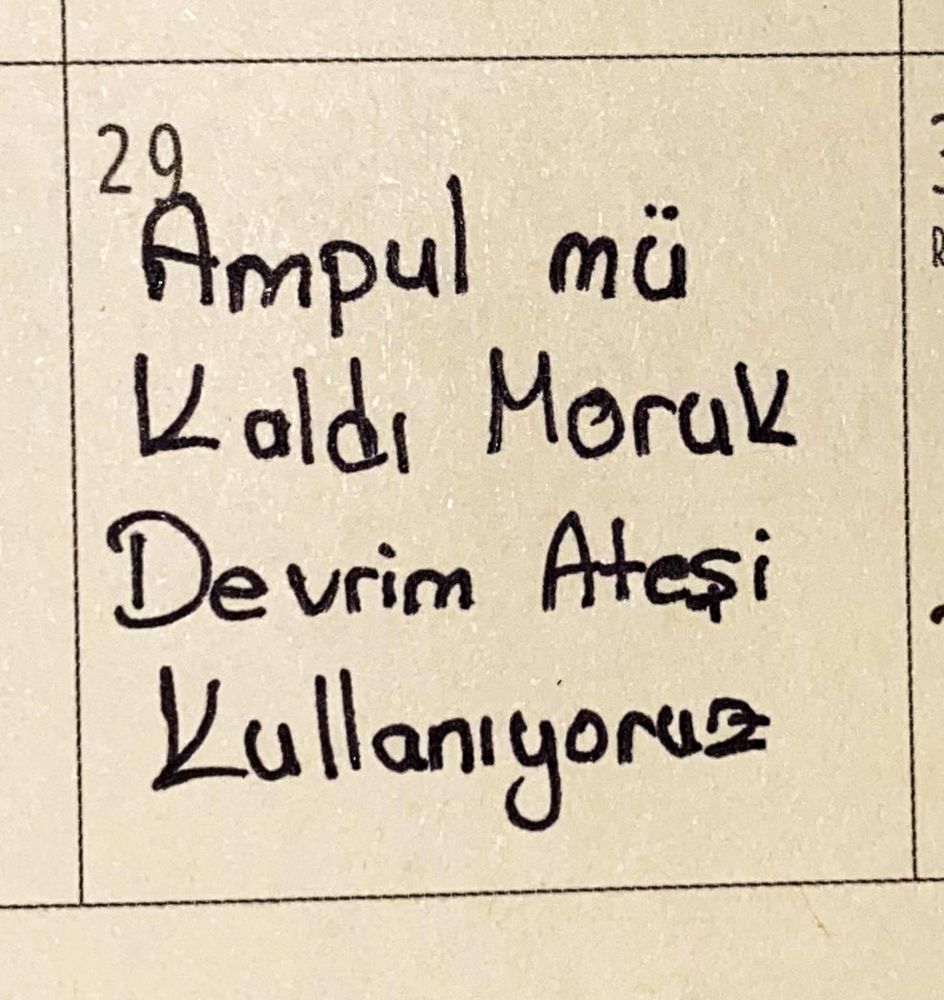 29
Ampul mü
Kaldı Moruk
Devrim Ateşi
Kullanıyoruz